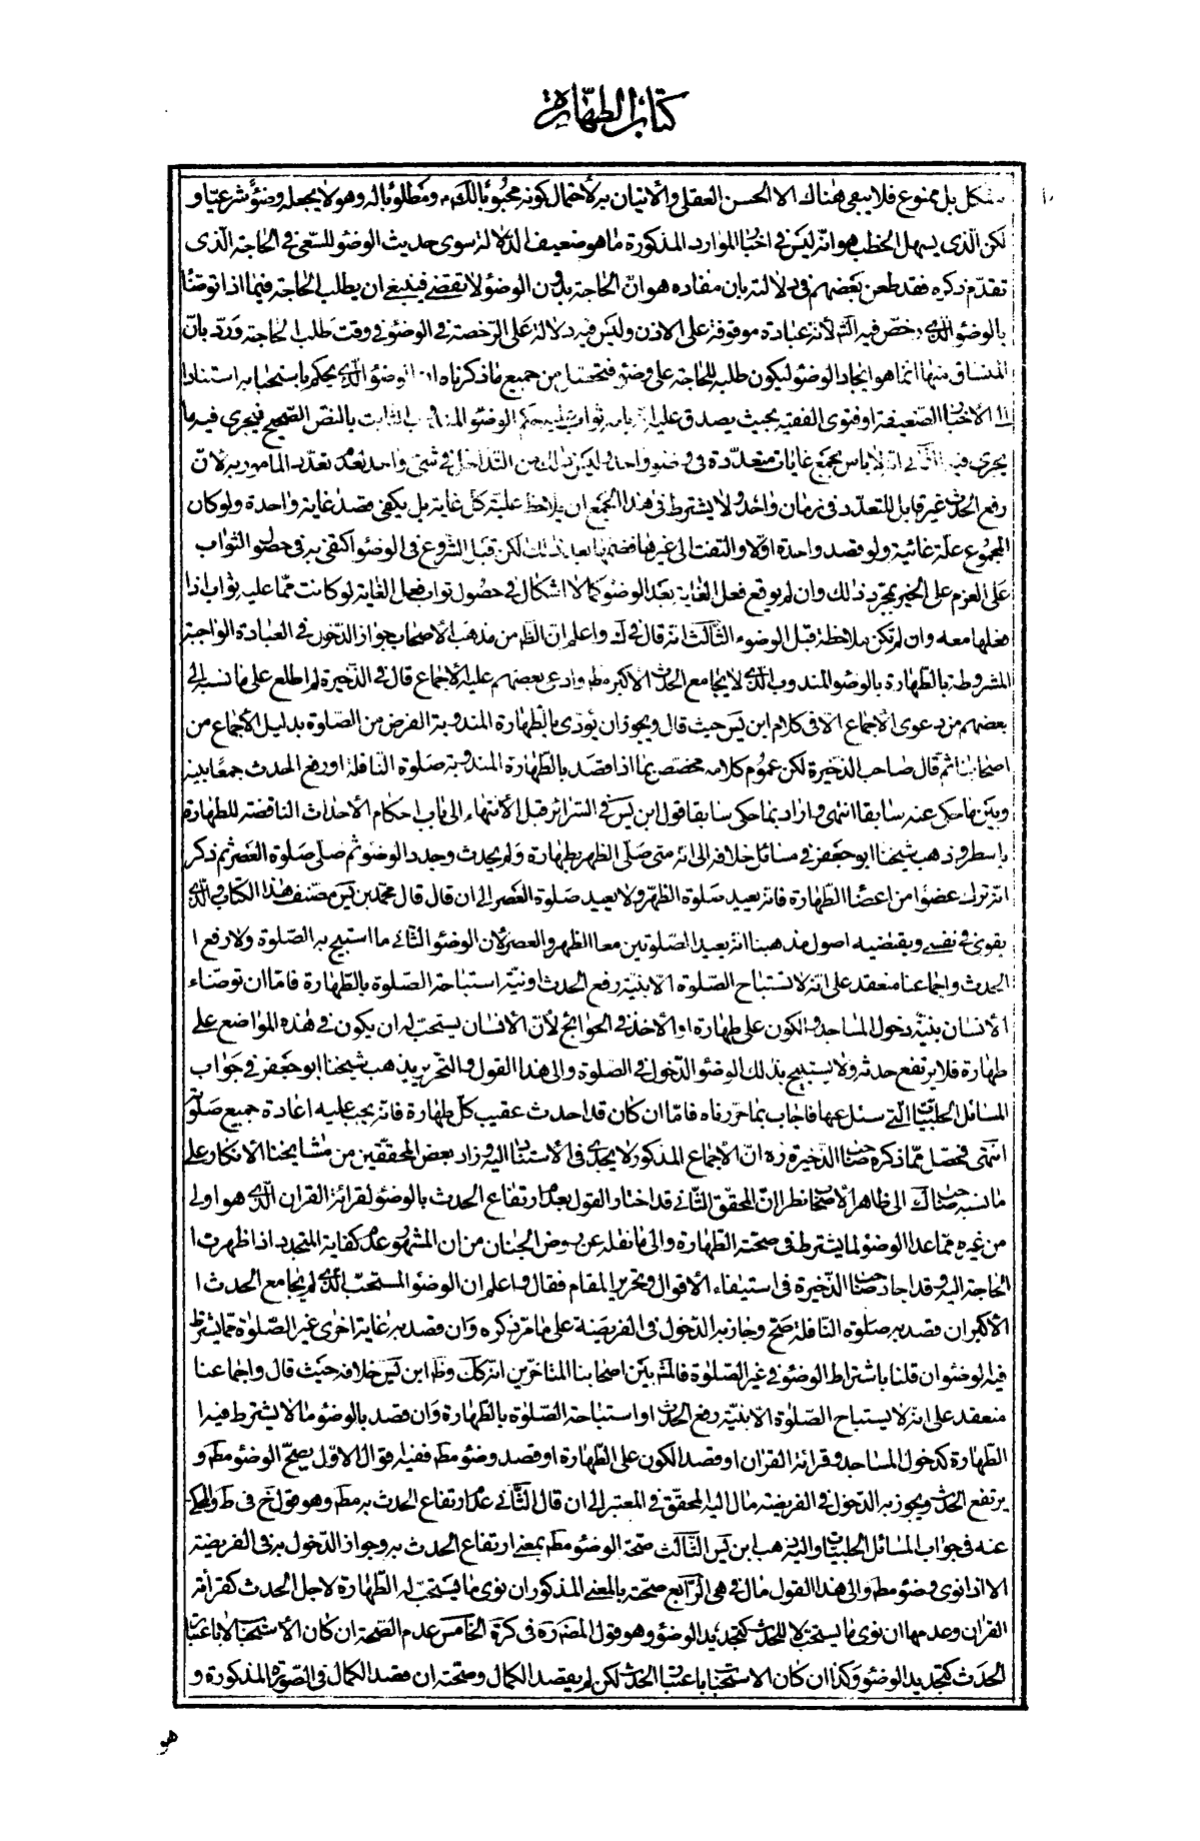 كتاب الطهارة
مشكل بل ممنوع فلا يبقى هناك الا الحسن العقلى والأتيان به لأحتمال كونه محبوبا لله تعالى ومطلوبا له وهو لا يجعله وضوء شرعيّا و
لكن الّذى يسهل الخطب هو انّه ليس فى اخبار الموارد المذكورة ما هو ضعيف الدّلالة سوى حديث الوضوء للسّعى فى الحاجة الّذى
تقدّم ذكره فقد طعن بعضهم فى دلالته بان مفاده هو انّ الحاجة بدون الوضوء لا تقضى فينبغى ان يطلب الحاجة فيما اذا توضّأ
بالوضوء الّذى رخّص فيه الشّارع لأنه عبادة موقوفة على الاذن وليس فيه دلالة على الرّخصة فى الوضوء فى وقت طلب الحاجة وردّ بانّ
المنساق منها انّما هو ايجاد الوضوء ليكون طلبه للحاجة على وضوء فتحصّل من جميع ما ذكرناه انّ الوضوء الّذى يحكم باستحبابه استنادا
الى الأخبار الضّعيفة او فتوى الفقيه بحيث يصدق عليه بلوغ ثواب عليه حكم الوضوء المندوب الثابت بالنّص الصّحيح فيجرى فيه ما
يجرى فيه الثّانى انّه لا باس بجمع غايات متعدّدة فى وضوء واحد وليس ذلك من التّداخل فى شئ واحد بعد تعدّد المامور به لأن
رفع الحدث غير قابل للتعدّد فى زمان واحد ولا يشترط فى هذا الجمع ان يلاحظ علّية كلّ غاية بل يكفى قصد غاية واحدة ولو كان
المجموع علّة غائية ولو قصد واحدة اوّلا والتفت الى غيرها فضمّها بعد ذلك لكن قبل الشّروع فى الوضوء اكتفى به فى حصول الثّواب
على العزم على الخير بمجرّد ذلك وان لم يوقع فعل الغاية بعد الوضوء كما لا اشكال فى حصول ثواب فعل الغاية لو كانت ممّا عليه ثواب اذا
فعلها معه وان لم تكن ملاحظة قبل الوضوء الثّالث انّه قال فى ك واعلم انّ الظّ من مذهب الأصحاب جواز الدّخول فى العبادة الواجبة
المشروطة بالطّهارة بالوضوء المندوب الّذى لا يجامع الحدث الأكبر مط وادعى بعضهم عليه الأجماع قال فى الذّخيرة لم اطلع على ما نسبه الى
بعضهم من دعوى الأجماع الّا فى كلام ابن يس حيث قال ويجوز ان يؤدّى بالطّهارة المندوبة الفرض من الصّلوة بدليل الأجماع من
اصحابنا ثم قال صاحب الذّخيرة لكن عموم كلامه مختصّ بما اذا قصد بالطّهارة المندوبة صلوة النّافلة او رفع الحدث جمعا بينه
وبين ما حكى عنه سابقا انتهى واراد بما حكى سابقا قول ابن يس فى السّرائر قبل الأنتهاء الى باب احكام الأحداث الناقضة للطهارة
باسطر وذهب شيخنا ابو جعفر فى مسائل خلافه الى انّه متى صلّى الظّهر بطهارة ولم يحدث وجدد الوضوء ثم صلّى صلوة العصر ثم ذكر
انّه ترك عضوا من اعضاء الطّهارة فانّه يعيد صلوة الظّهر ولا يعيد صلوة العصر الى ان قال قال محمّد بن يس مصنّف هذا الكتاب والّذى
يقوى فى نفسى ويقتضيه اصول مذهبنا انّه يعيد الصّلوتين معا الظّهر والعصر لان الوضوء الثّانى ما استبيح به الصّلوة ولا رفع ا
الحدث واجماعنا منعقد على انّه لا تستباح الصّلوة الا بنيّة رفع الحدث او نيّة استباحة الصّلوة بالطّهارة فامّا ان توضّاء
الأنسان بنيّة دخول المساجد والكون على طهارة او الأخذ فى الحوائج لأنّ الانسان يستحبّ له ان يكون فى هذه المواضع على
طهارة فلا يرتفع حدثه ولا يستبيح بذلك الوضوء الدّخول فى الصلوة والى هذا القول والتّحرير يذهب شيخنا ابو جعفر فى جواب
المسائل الحلبيّات الّتى سئل عنها فاجاب بما حرّرناه فامّا ان كان قد احدث عقيب كلّ طهارة فانّه يجب عليه اعادة جميع صلوته
انتهى فتحصّل ممّا ذكره صاحب الذّخيرة ره انّ الأجماع المذكور لا يجدى فى الأستناد اليه وزاد بعض المحققين من مشايخنا الانكار على
ما نسبه صاحب ك الى ظاهر الأصحاب نظرا الى انّ المحقّق الثّانى قد اختار القول بعدم ارتفاع الحدث بالوضوء لقرائة القران الّذى هو اولى
من غيره ممّا عدا الوضوء لما يشترط فى صحّته الطّهارة والى ما نقله عن روض الجنان من ان المشهور عدم كفاية المتجدد اذا ظهرت ا
الحاجة اليه وقد اجاد صاحب الذّخيرة فى استيفاء الأقوال وتحرير المقام فقال واعلم ان الوضوء المستحبّ الّذى لم يجامع الحدث ا
الأكبر ان قصد به صلوة النّافلة صحّ وجاز به الدّخول فى الفريضة على ما مرّ ذكره وان قصد به غاية اخرى غير الصّلوة ممّا يشترط
فيه الوضوء ان قلنا باشتراط الوضوء فى غير الصّلوة فالمش بين اصحابنا المتاخّرين انّه كك وظ ابن يس خلافه حيث قال واجماعنا
منعقد على انّه لا يستباح الصّلوة الا بنيّة رفع الحدث او استباحة الصّلوة بالطّهارة وان قصد بالوضوء ما لا يشترط فيه ا
الطّهارة كدخول المساجد وقرائة القران او قصد الكون على الطّهارة او قصد وضوء مط ففيه اقوال الاوّل يصحّ الوضوء مط و
يرتفع الحدث ويجوز به الدّخول فى الفريضة مال اليه المحقّق فى المعتبر الى ان قال الثّانى عدم ارتفاع الحدث به مط وهو قول خ فى ط والمحكى
عنه فى جواب المسائل الحلبيات واليه ذهب ابن يس الثّالث صحّة الوضوء مط بمعنى ارتفاع الحدث به وجواز الدّخول به فى الفريضة
الا اذا نوى وضوء مط والى هذا القول مال فى هى الرّابع صحّته بالمعنى المذكور ان نوى ما يستحبّ له الطّهارة لاجل الحدث كقرائة
القران وعدمها ان نوى ما يستحبّ لا للحدث كتجديد الوضوء وهو قول المصره فى كره الخامس عدم الصّحة ان كان الأستحباب لا باعتبار
الحدث كتجديد الوضوء وكذا ان كان الاستحباب باعتبار الحدث لكن لم يقصد الكمال وصحّته ان قصد الكمال فى الصّورة المذكورة و
هو